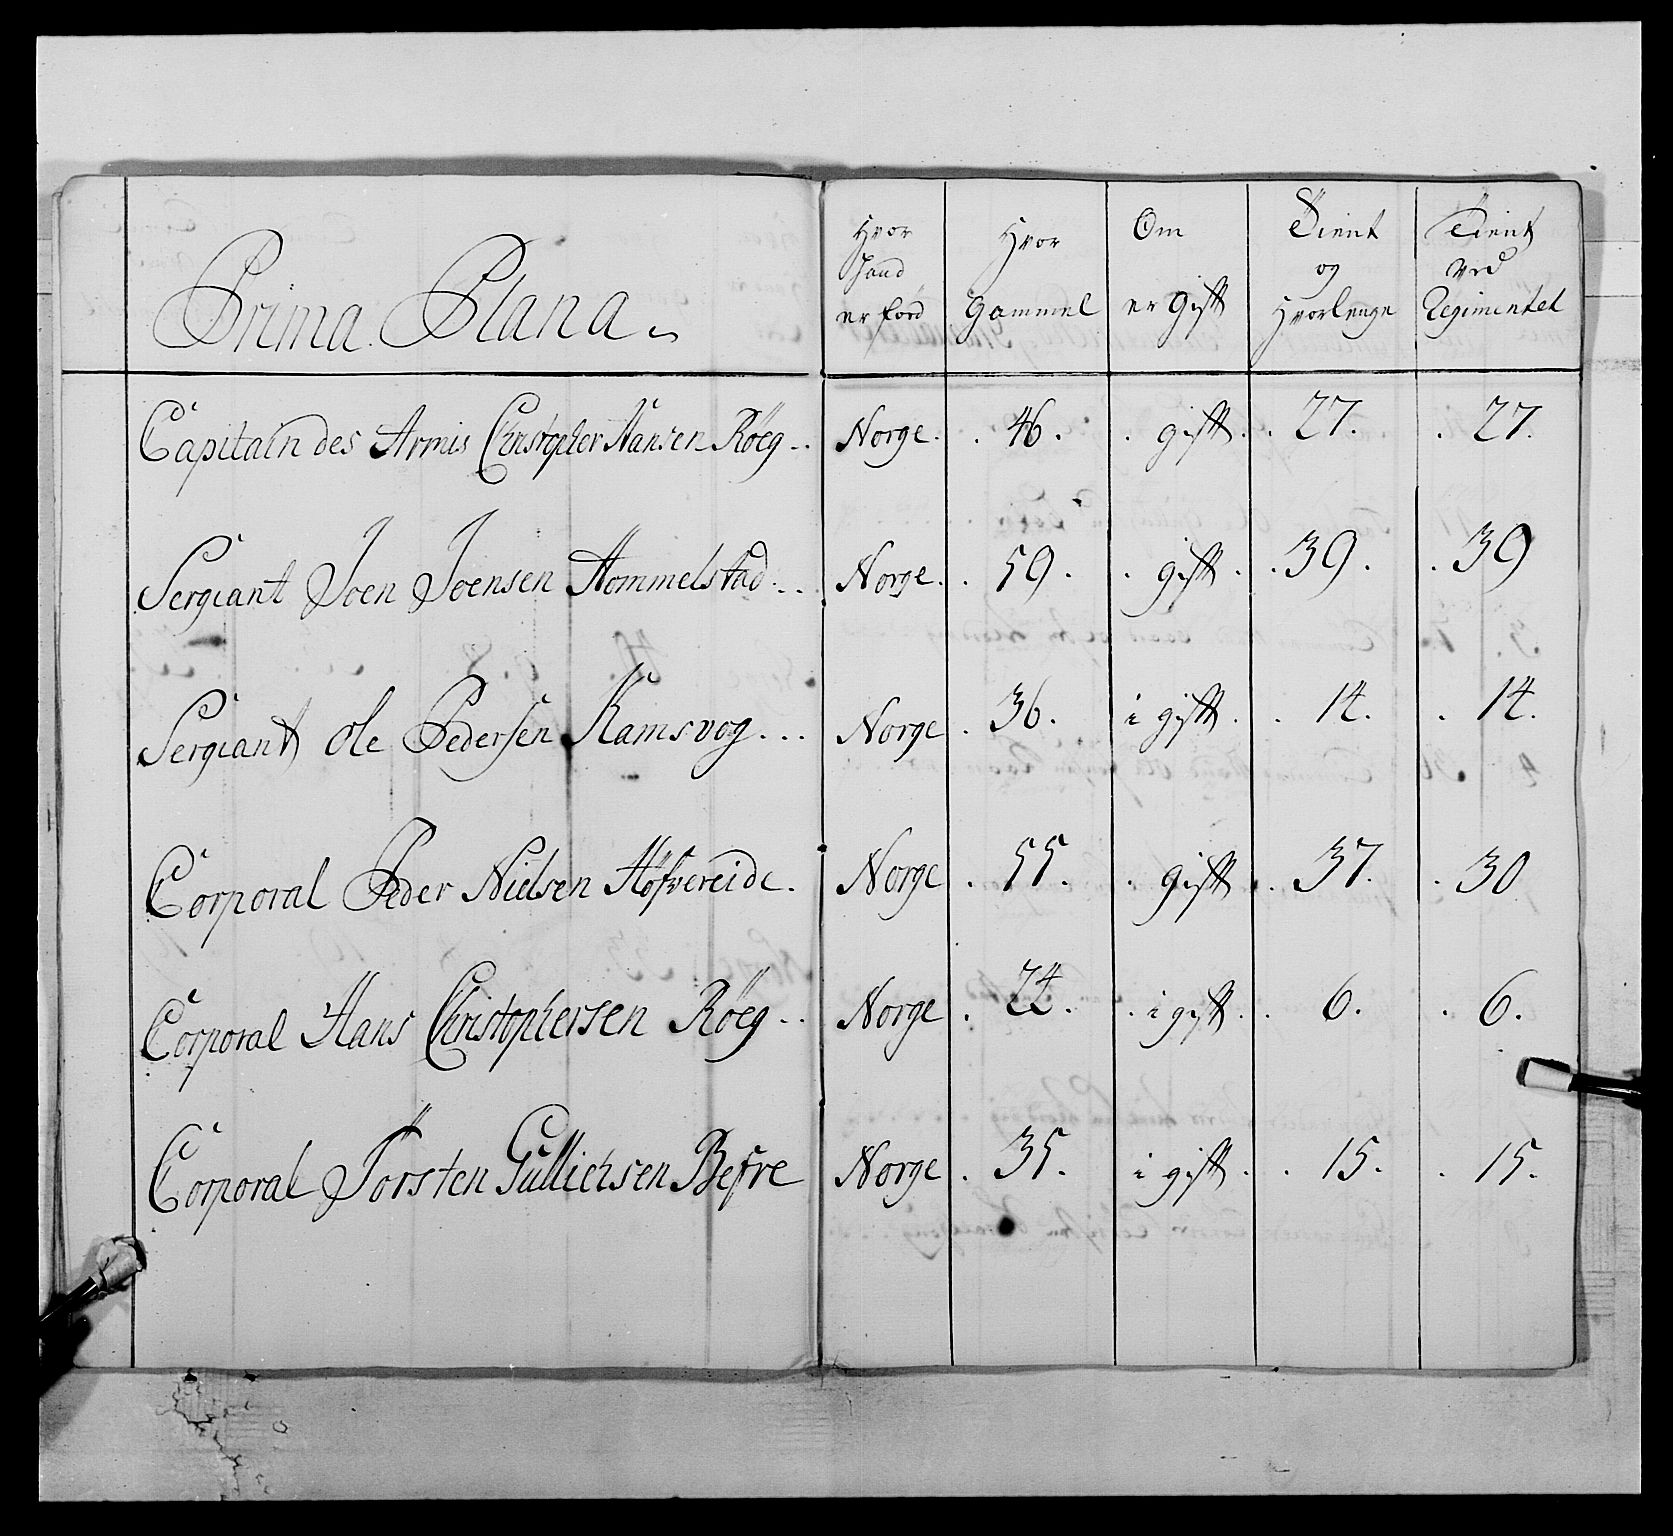 Prima Plana
Hvor hand er föed | Hvor gammel | Om er gift | Tient og hvorlenge | Tient ved Regimentet
Capitain des Armis Christopher Hansen Röeg .. Norge . 46 . gift . 27 . 27.
Sergiant Joen Joensen Hommelstad ... Norge . 59 . gift . 39 . 39
Sergiant Ole Pedersen Ramsvog ... Norge . 36 . i gift . 14 . 14.
Corporal Peder Nielsen Höfvereide . Norge . 55 . gift . 37 . 30
Corporal Hans Christophersen Röeg .. Norge . 24 . i gift . 6 . 6.
Corporal Torsten Gullichsen Befre Norge . 35 . i gift . 15 . 15.